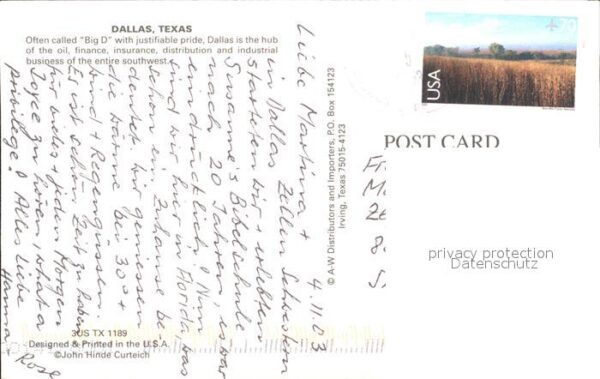 DALLAS, TEXAS
Often called "Big D" with justifiable pride, Dallas is the hub
of the oil, finance, insurance, distribution and industrial
business of the entire southwest.
4.11.03
Liebe Martina +
Zellen Schwestern
in Dallas
starteten wir + erlebten
Susanne's Bibelschule
nach 20 Jahren, es war
eindrücklich! Nun
sind wir hier in Florida was
schon ein Zuhause be-
deutet, wir geniessen
die Wärme bei 30° +
Wind + Regengüssen.
Es ist schön Zeit zu haben
für vieles + jeden Morgen
Joyce zu hören, what a
privilege! Alles Liebe
Hanna + Rose
3US TX 1189
Designed & Printed in the U.S.A.
©John Hinde Curteich
© A-W Distributors and Importers, P.O. Box 154123
Irving, Texas 75015-4123
USA
70
POST CARD
privacy protection
Datenschutz